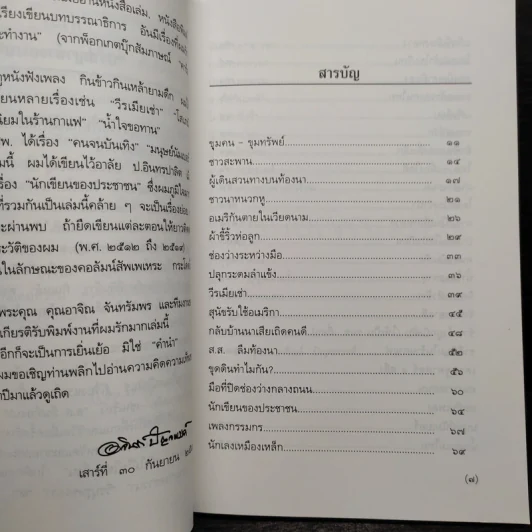 เรียงเขียนบทบรรณาธิการ อันมีเรื่องที่
ะทำงาน" (จากพ็อกเกตบุ๊กสัมภาษณ์
ดูหนังฟังเพลง กินข้าวกินเหล้ายามดึก
ยนหลายเรื่องเช่น "วีรเมียเช่า"
นิยมในร้านกาแฟ" "น้ำใจขอทาน"
พ. ได้เรื่อง "คนจนบันเทิง"
มนี้ ผมได้เขียนไว้อาลัย ป.อินทรปาลิต
รื่อง "นักเขียนของประชาชน" ซึ่งผมภูมิใจ
ที่รวมกันเป็นเล่มนี้คล้าย ๆ จะเป็นเรื่องย่อย
ะผ่านพบ ถ้ายึดเขียนแต่ละตอนให้ยาว
ะวัติของผม (พ.ศ. ๒๕๑๒ ถึง ๒๕๑๙)
นในลักษณะของคอลัมน์สัพเพเหระ
พระคุณ คุณอาจิณ จันทรัมพร และทีมงาน
เกียรติรับพิมพ์งานที่ผมรักมากเล่มนี้
อีกก็จะเป็นการเยิ่นเย้อ มิใช่ "คำนำ"
ผมขอเชิญท่านพลิกไปอ่านความคิดความเห็น
ปีมาแล้วดูเถิด
เสาร์ที่ ๓๐ กันยายน
สารบัญ
ขุมคน - ขุมทรัพย์ ๑๑
ชาวสะพาน ๑๔
ผู้เดินสวนทางบนท้องนา ๑๗
ชาวนาหนวกหู ๒๑
อเมริกันตายในเวียตนาม ๒๖
ผ้าขี้ริ้วห่อลูก ๒๙
ช่องว่างระหว่างมือ ๓๓
ปลุกระดมลำแข้ง ๓๖
วีรเมียเช่า ๓๙
สุนัขรับใช้อเมริกา ๔๕
กลับบ้านนาเสียเถิดคนดี ๔๘
ส.ส. ลืมท้องนา ๕๒
ขุดดินทำไมกัน? ๕๖
มือที่ปิดช่องว่างกลางถนน ๖๐
นักเขียนของประชาชน ๖๔
เพลงกรรมกร ๖๗
นักเลงเหมืองเหล็ก ๖๙
(๗)